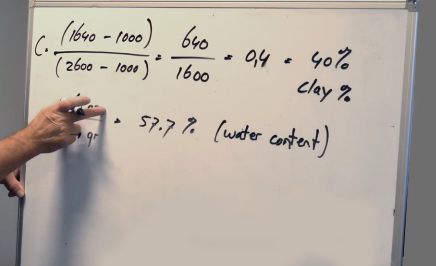 C. (1640 - 1000) / (2600 - 1000) = 640 / 1600 = 0,4 = 40%
clay %
= 57.7 % (water content)